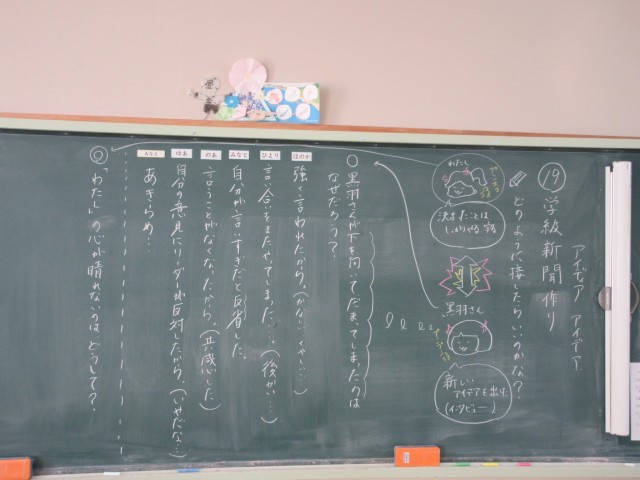 ⑲ 学級新聞作り
アイデア アイデア
どのように接したらいいのかな?
わたし
決まったことは
しっかりやる
黒羽さん
新しい
アイデアを出した
(インタビュー)
○ 黒羽さんが下を向いてだまってしまったのは
なぜだろう?
ほのか
強く言われたから。(かなしい…)
ひより
言い合いをまたやってしまった…。(後かい…)
みなと
自分が言いすぎだと反省した。
のあ
言うことがなくなったから。(共感した)
ゆあ
自分の意見にリーダーが反対したから。(いやだな…)
みなと
あきらめ…
◎「わたし」の心が晴れないのは、どうして?